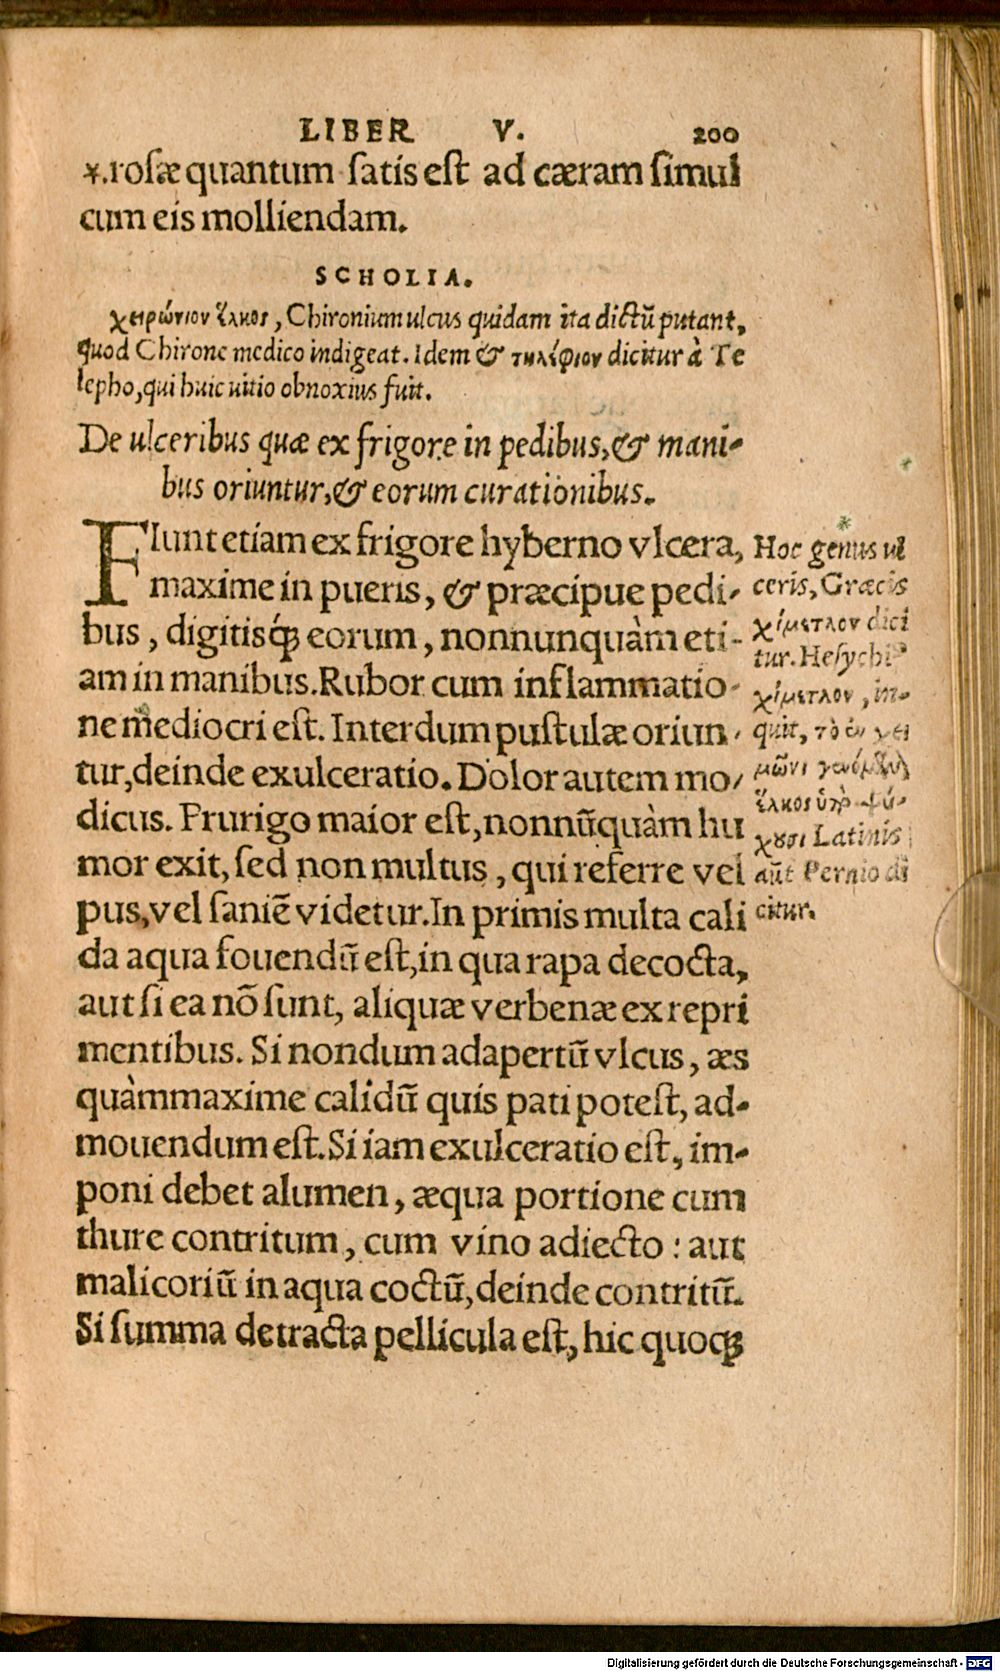 LIBER V. 200
*.rosæ quantum satis est ad cæram simul
cum eis molliendam.
SCHOLIA.
χειρώνιον ἕλκος, Chironium ulcus quidam ita dictū putant,
quod Chirone medico indigeat. Idem & τηλέφιον dicitur à Te
lepho, qui huic uitio obnoxius fuit.
De ulceribus quæ ex frigore in pedibus, & mani-
bus oriuntur, & eorum curationibus.
FIunt etiam ex frigore hyberno vlcera,
maxime in pueris, & præcipue pedi-
bus, digitisq́; eorum, nonnunquàm eti-
am in manibus. Rubor cum inflammatio-
ne mediocri est. Interdum pustulæ oriun-
tur, deinde exulceratio. Dolor autem mo-
dicus. Prurigo maior est, nonnūquàm hu
mor exit, sed non multus, qui referre vel
pus, vel saniē videtur. In primis multa cali
da aqua fouendū est, in qua rapa decocta,
aut si ea nō sunt, aliquæ verbenæ ex repri
mentibus. Si nondum adapertū vlcus, æs
quàmmaxime calidū quis pati potest, ad-
mouendum est. Si iam exulceratio est, im-
poni debet alumen, æqua portione cum
thure contritum, cum vino adiecto: aut
malicoriū in aqua coctū, deinde contritū.
Si summa detracta pellicula est, hic quoq;
*
Hoc genus ul
ceris, Græcis
χίμετλον dici
tur. Hesychi⁹
χίμετλον, in-
quit, τὸ ἐν χει
μῶνι γενόμενον
ἕλκος ὑπὸ ψύ-
χους Latinis
aūt Pernio di
citur.
Digitalisierung gefördert durch die Deutsche Forschungsgemeinschaft - DFG